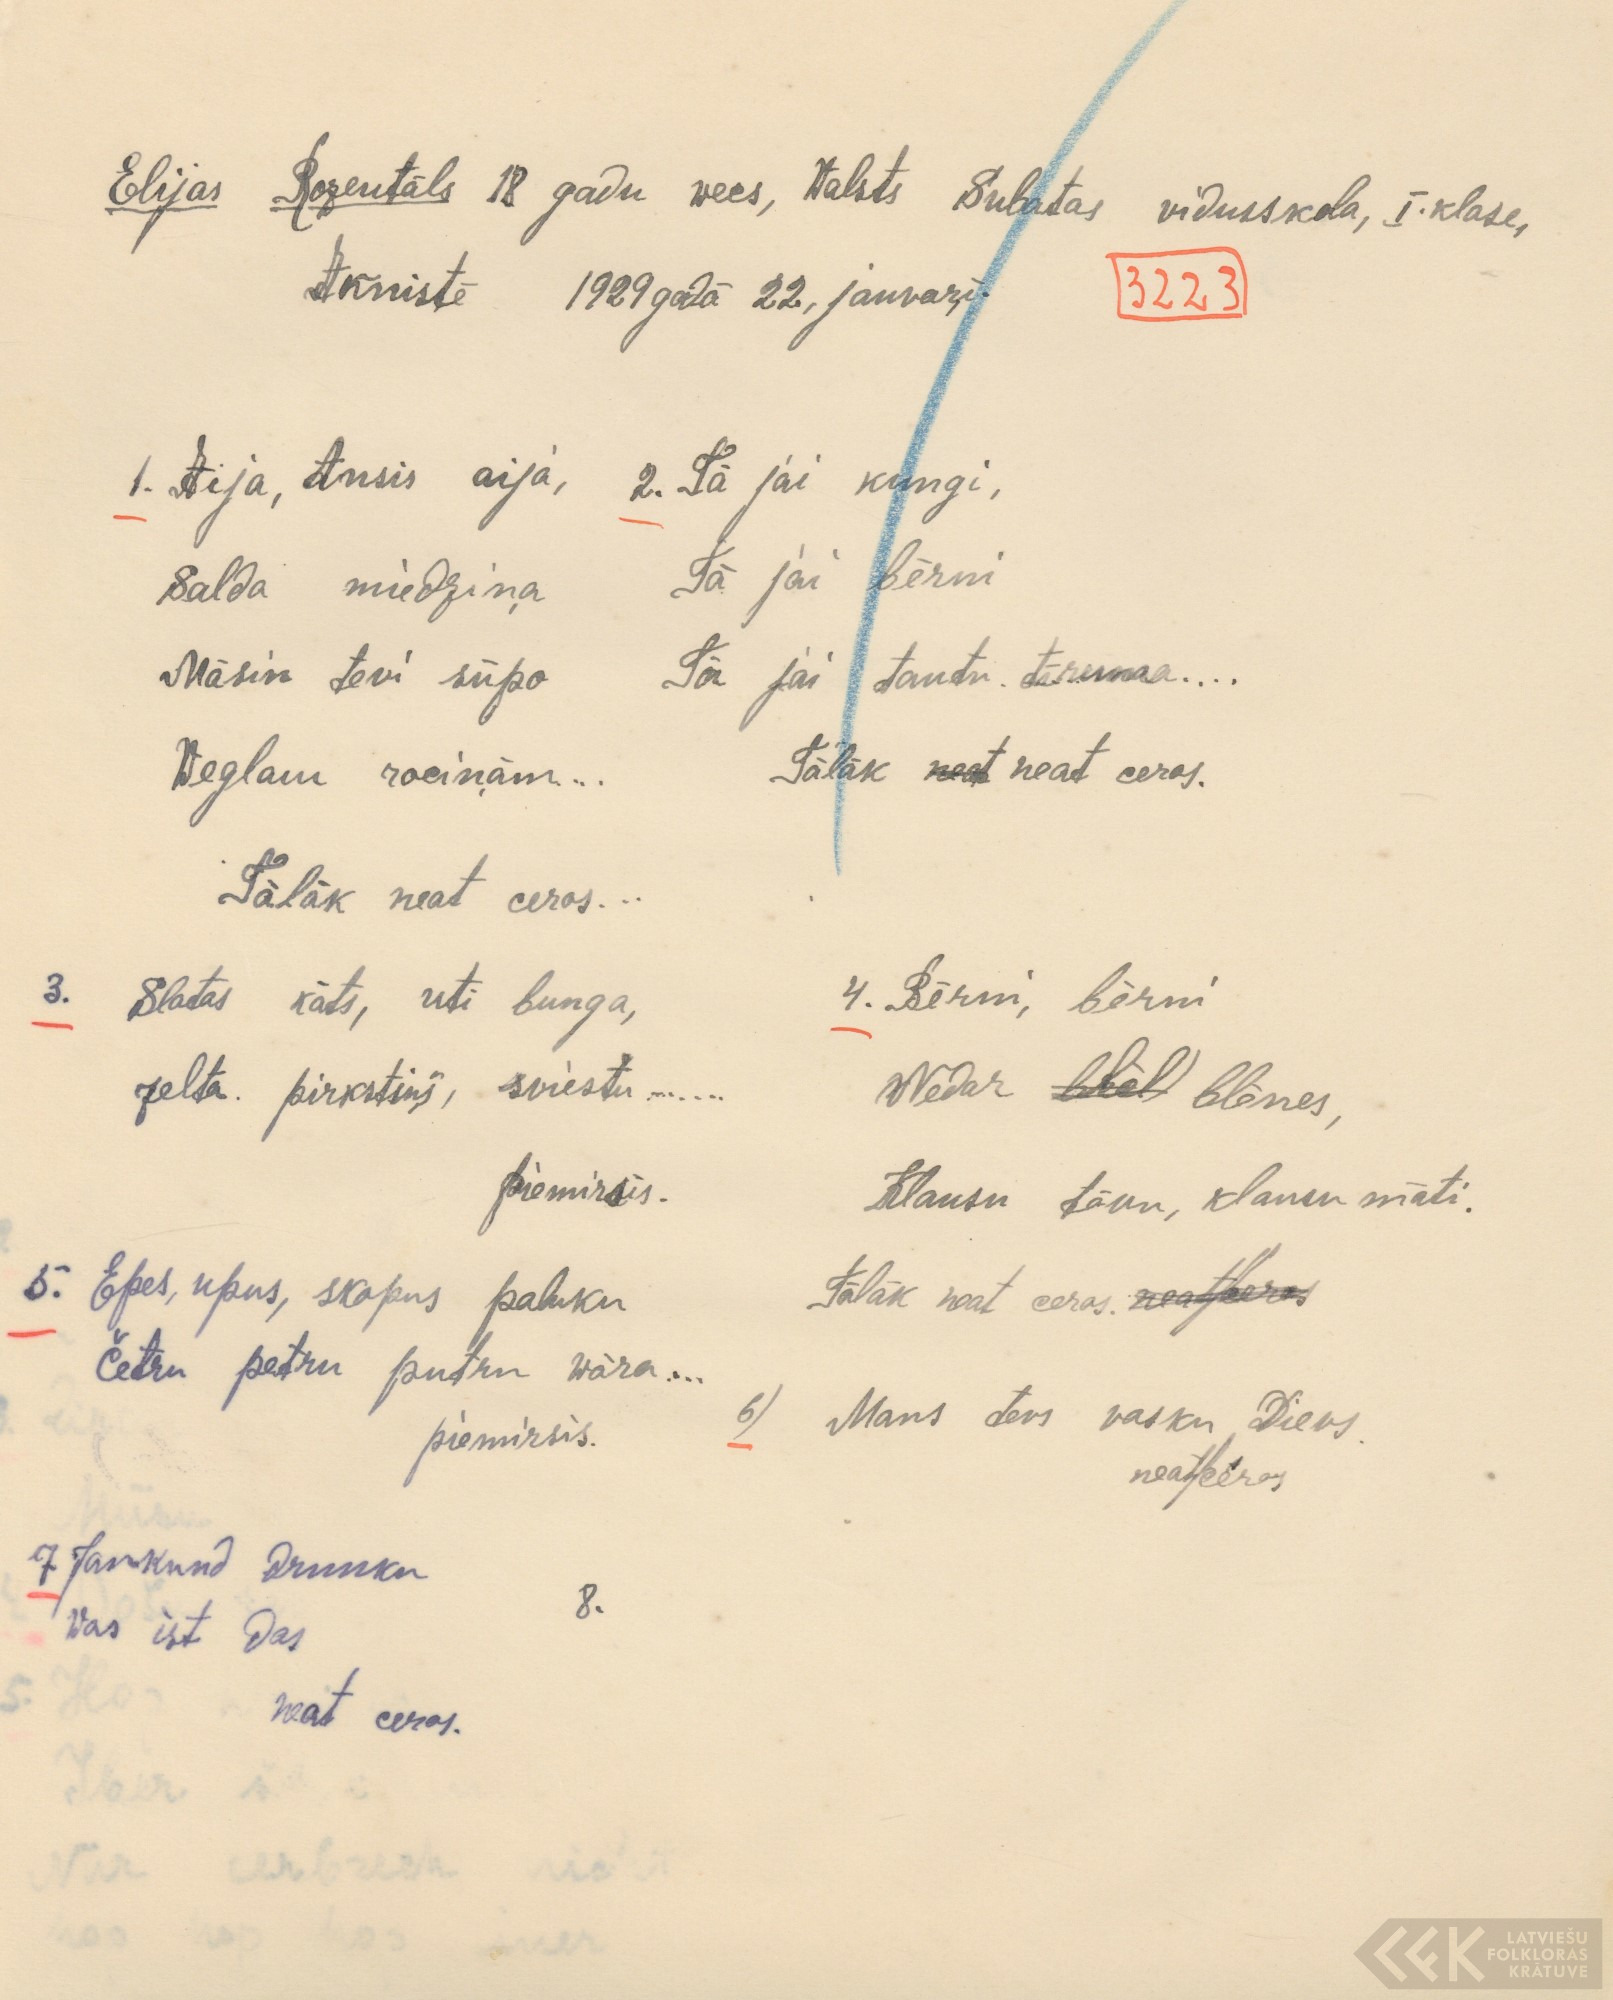 Elijas Rozentāls 18 gadu wecs, Valsts Subatas vidusskola, I. klase,
Aknistē 1929 gadā 22, janvarī.
3223
1. Aija, Ansis aijā,
Salda miedziņa
Māsin tevi sūpo
Veglam rociņām...
Tālāk neat ceros...
2. Tā jāi kungi,
Tā jāi bērni
Tā jāi tautu
Tālāk neat neat ceros.
3. Slatas kāts, uti bunga,
zelta pirkstiņi, sviestu.......
piemirsis.
4. Bērni, bērni
Wēdar blēnes,
Klausu tāvu, klausu māti.
Tālāk neat ceros. neatceros
5. Epes, upus, skapus paluku
Četru petru putru wāra...
piemirsis.
6) Mans tevs vasku Dievs.
neatceros
7 Jankund Drunku
Was ist das
neat ceros.
8.
LATVIEŠU
FOLKLORAS
KRĀTUVE